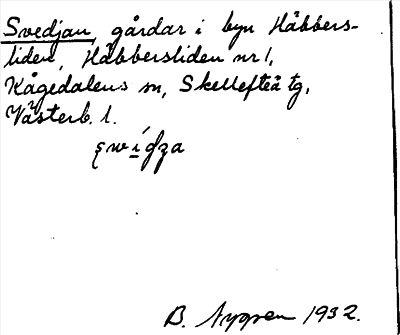 Svedjan, gårdar i byn Häbbers-
liden, Häbbersliden nr 1,
Kågedalens sn, Skellefteå tg,
Västerb. l.
B. Nygren 1932.